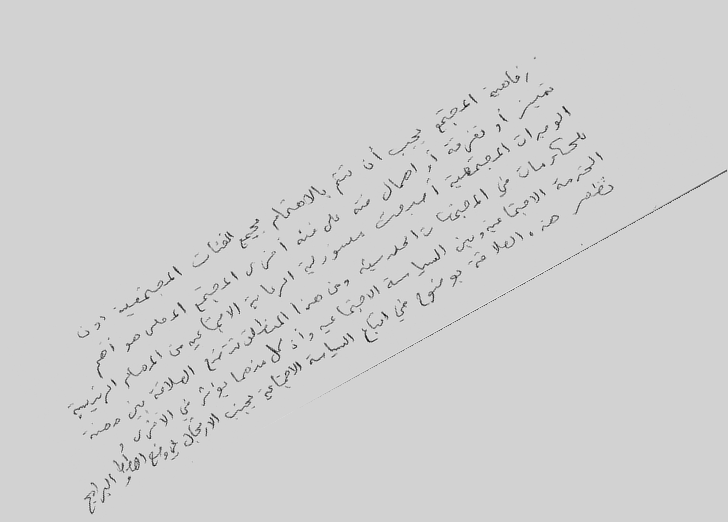 رفاهية المجتمع يجب أن تتم بالاهتمام بجميع الفئات المجتمعية دون
تمييز أو تفرقة أو اهمال فئة على فئة أخرى المجتمع المحلى هو أهم
الوحدات المجتمعية أصبحت مسئولية الرعاية الاجتماعية من المهام الرئيسية
للحكومات في المجتمعات الحديثة ومن هذا المنطلق تتضح العلاقة بين مهنة
الخدمة الاجتماعية وبين السياسة الاجتماعية وأن كل منهما يؤثر في الاخرى و
تظهر هذه العلاقة بوضوح في اتباع السياسة الاجتماعية تجنب الارتجال في وضع البرامج